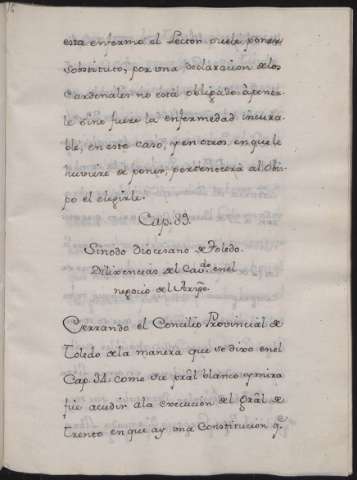 esta enfermo el Lector suele poner
sobstituto, por una declaracion de los
Cardenales no está obligado à poner
le sino fuere la enfermedad incura
ble, en este caso, y en otros en que le
huviere de poner, pertenecerá al Obis
po el elegirle.
Cap. 89.
Sinodo diocesano de Toledo.
Diligencias del Cavdo. en el
negocio del Arzpo.
Cerrando el Concilio Provincial de
Toledo de la manera que se dixo en el
Cap. 34 como su prâl blanco y mira
fue acudir a la execucion del grâl de
Trento en que ay una Constitucion q.e